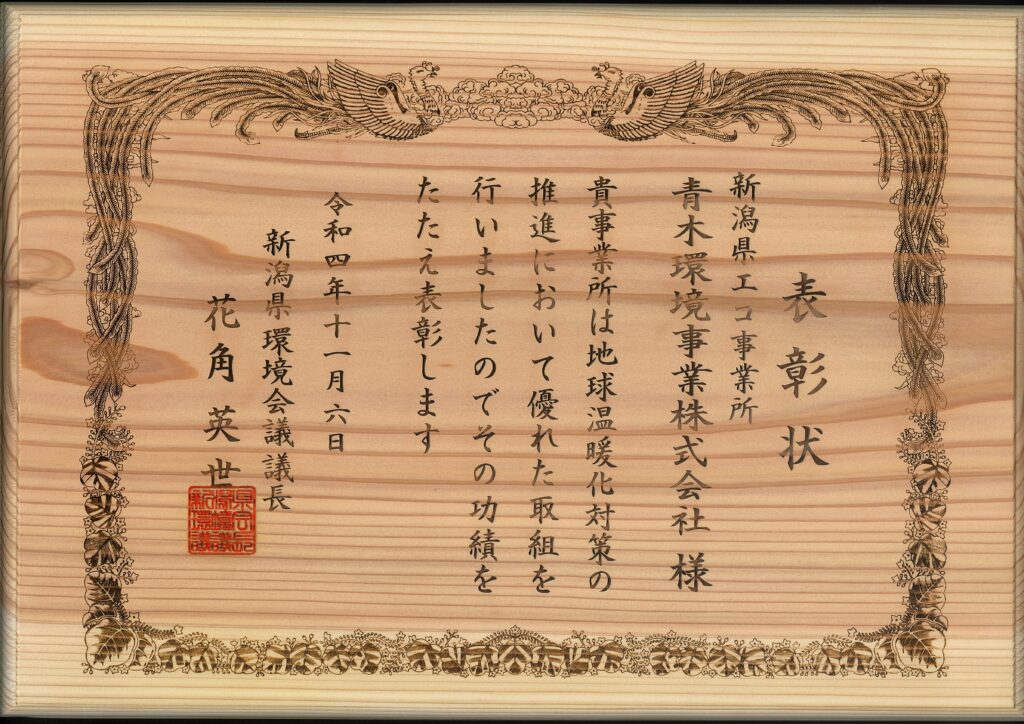 表彰状
新潟県エコ事業所
青木環境事業株式会社 様
貴事業所は地球温暖化対策の
推進において優れた取組を
行いましたのでその功績を
たたえ表彰します
令和四年十一月六日
新潟県環境会議議長
花角英世